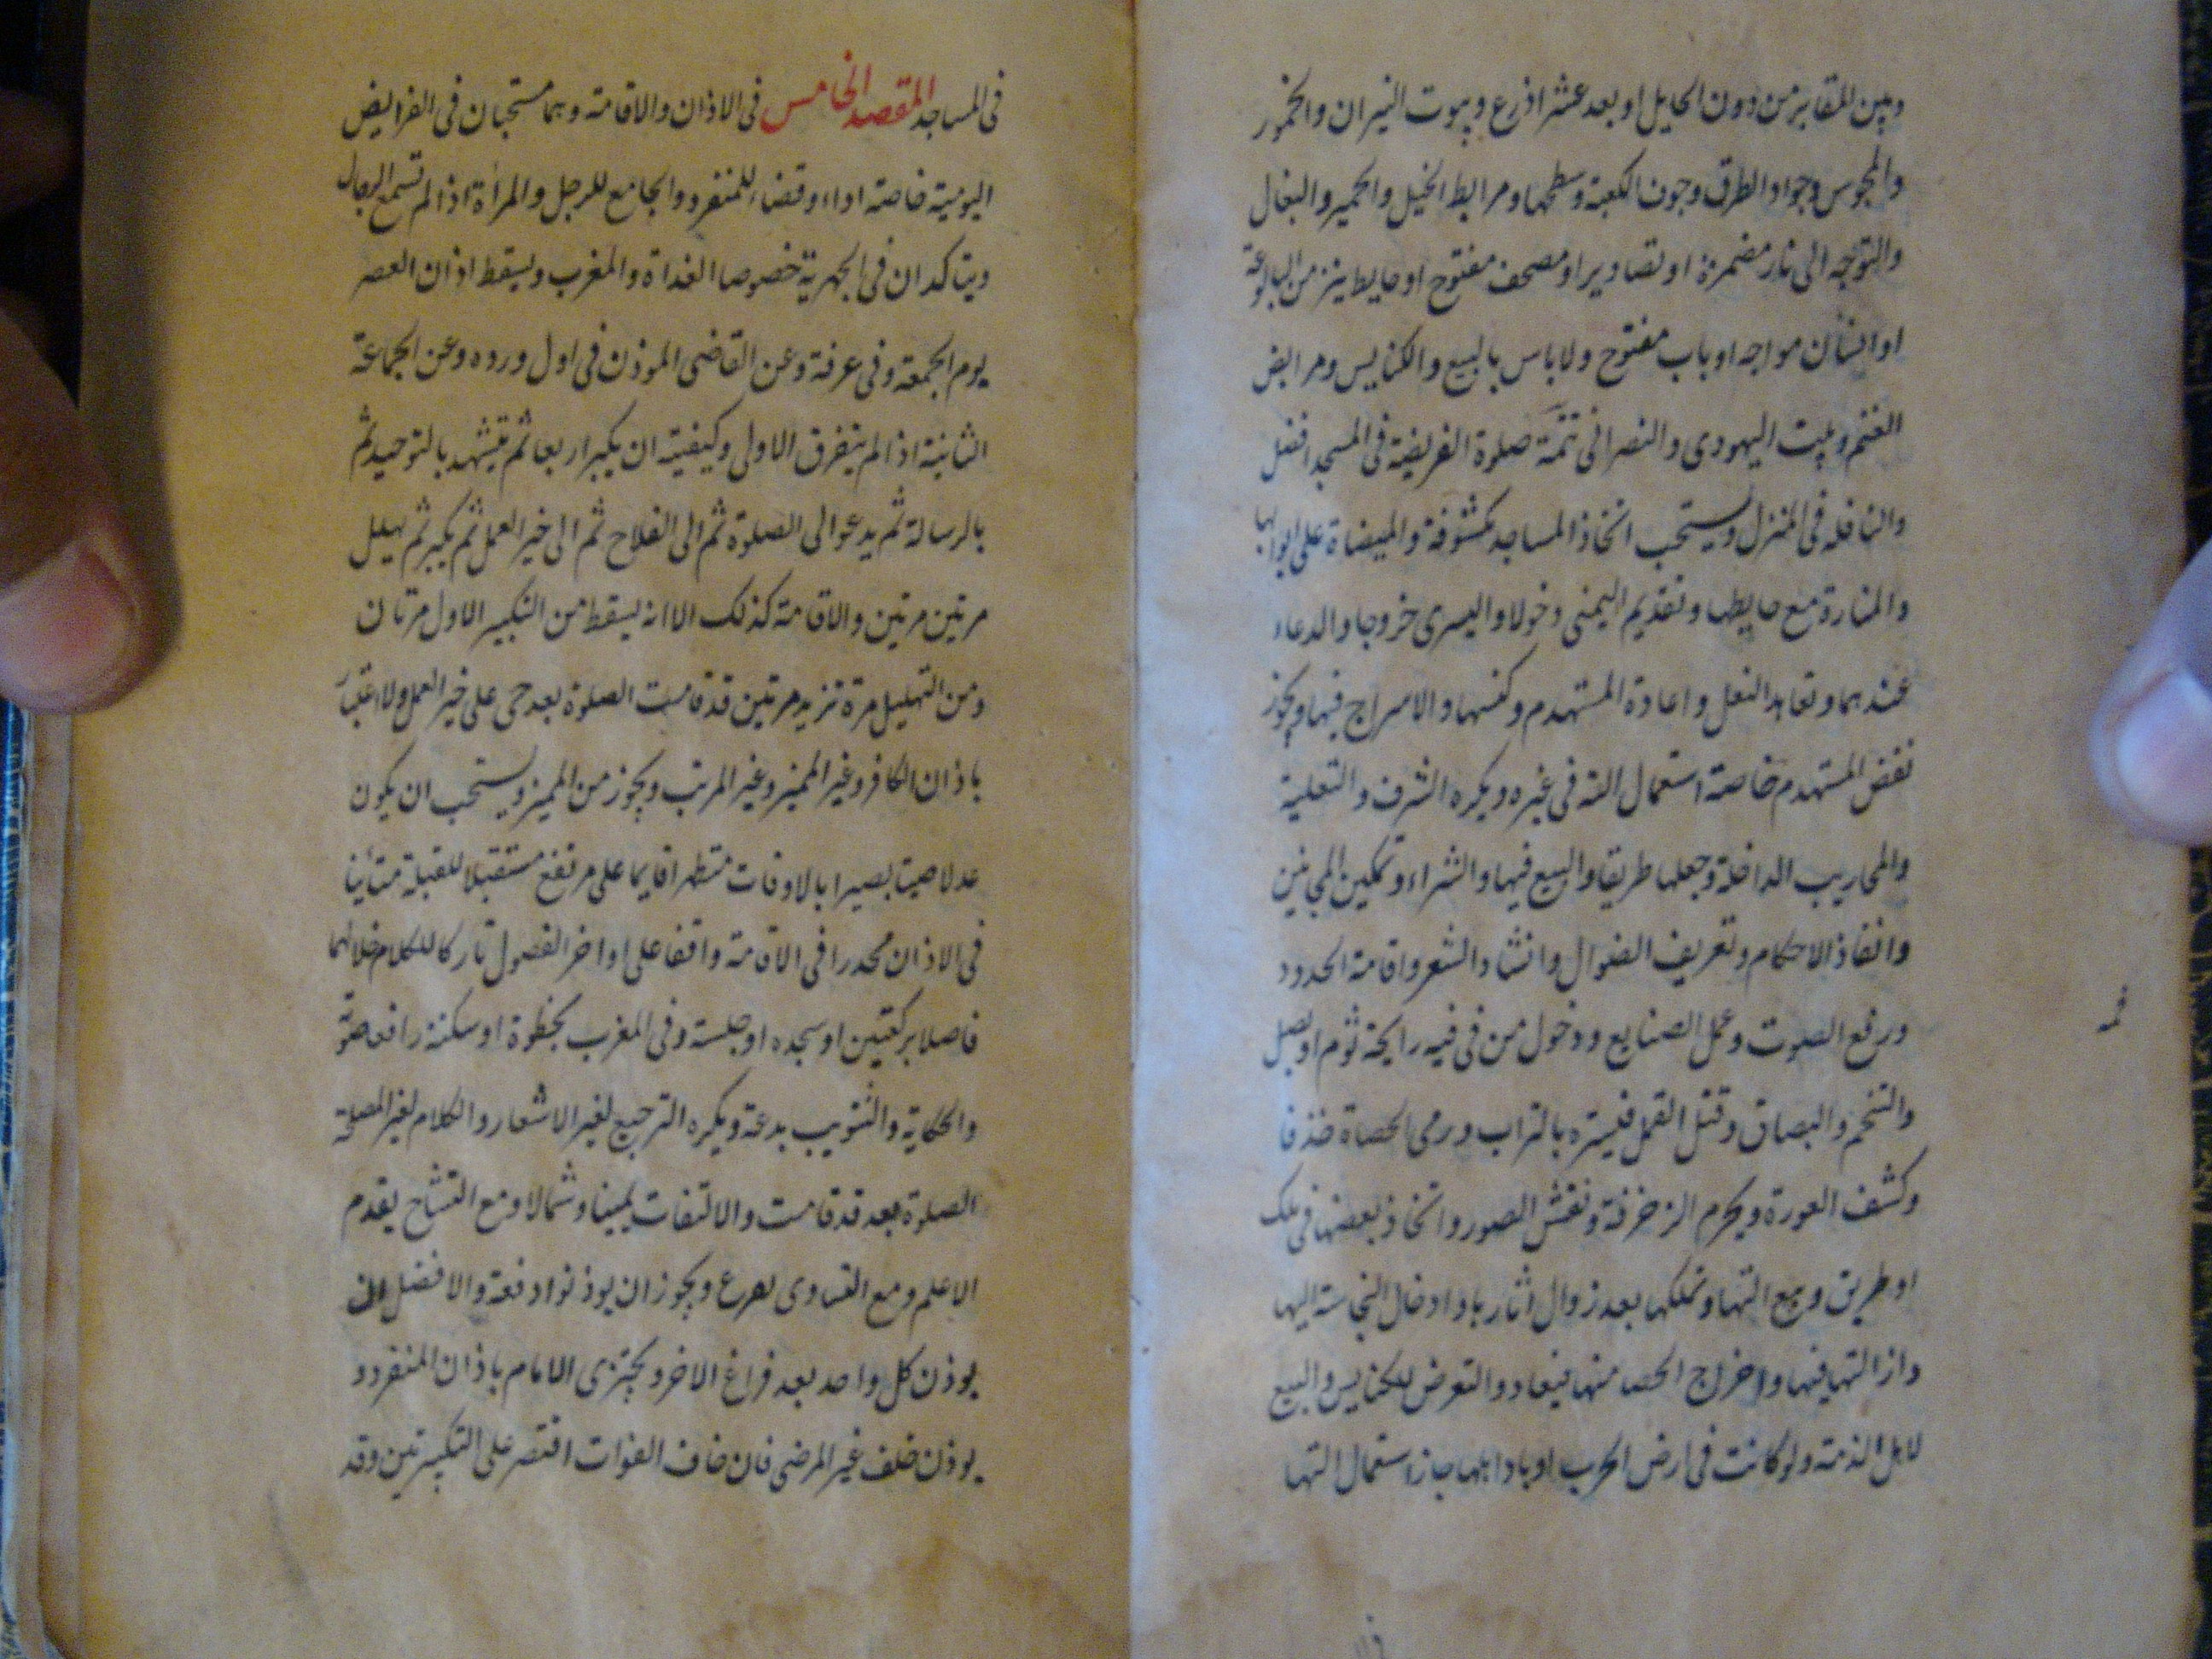 وبين المقابر من دون الحايل او بعد عشر اذرع وبيوت النيران والخمور
والمجوس وجواد الطرق وجوف الكعبة وسطحها ومرابط الخيل والحمير والبغال
والتوجه الى نار مضمرة او تصاوير او مصحف مفتوح او حايط ينز من البالوعة
او انسان مواجه او باب مفتوح ولا باس بالبيع والكنايس ومرابض
الغنم وبيت اليهودى والنصرانى تتمة صلوة الفريضة فى المسجد افضل
والنافلة فى المنزل ويستحب اتخاذ المساجد مكشوفة والميضاة على ابوابها
والمنارة مع حايطها وتقديم اليمنى دخولا واليسرى خروجا والدعاء
عندهما وتعاهد النعل واعادة المستهدم وكنسها والاسراج فيها ويجوز
نقض المستهدم خاصة استعمال الته فى غيره ويكره الشرف والتعلية
والمحاريب الداخلة وجعلها طريقا والبيع فيها والشراء وتمكين المجانين
وانفاذ الاحكام وتعريف الضوال وانشاد الشعر واقامة الحدود
ورفع الصوت وعمل الصنايع ودخول من فى فيه رايحة ثوم او بصل
والتنخم والبصاق وقتل القمل فيستره بالتراب ورمى الحصاة خذفا
وكشف العورة ويحرم الزخرفة ونقش الصور واتخاذ بعضها فى ملك
او طريق وبيع التها وتملكها بعد زوال اثارها وادخال النجاسة اليها
وازالتها فيها واخراج الحصا منها فيعاد والتعرض للكنايس والبيع
لاهل الذمة ولو كانت فى ارض الحرب او باد اهلها جاز استعمال التها
فى المساجد المقصد الخامس فى الاذان والاقامة وهما مستحبان فى الفرايض
اليومية خاصة اداء وقضاء للمنفرد والجامع للرجل والمراة اذا لم تسمع الرجال
ويتاكدان فى الجهرية خصوصا الغداة والمغرب ويسقط اذان العصر
يوم الجمعة وفى عرفة وعن القاضى الموذن فى اول ورده وعن الجماعة
الثانية اذا لم يتفرق الاولى وكيفيته ان يكبر اربعا ثم يتشهد بالتوحيد ثم
بالرسالة ثم يدعو الى الصلوة ثم الى الفلاح ثم الى خير العمل ثم يكبر ثم يهلل
مرتين مرتين والاقامة كذلك الا انه يسقط من التكبير الاول مرتان
ومن التهليل مرة تزيد مرتين قد قامت الصلوة بعد حى على خير العمل ولا اعتبار
باذان الكافر وغير المميز وغير المرتب ويجوز من المميز ويستحب ان يكون
عدلا صيتا بصيرا بالاوقات متطهرا قايما على مرتفع مستقبلا للقبلة متأنيا
فى الاذان محدرا فى الاقامة واقفا على اواخر الفصول تاركا للكلام خلالهما
فاصلا بركعتين او سجده او جلسة وفى المغرب بخطوة او سكتة رافعا صوته
والحكاية والتثويب بدعة ويكره الترجيع لغير الاشعار والكلام لغير المصلحة
الصلوة بعد قد قامت والالتفات يمينا وشمالا ومع التشاح يقدم
الاعلم ومع التساوى يقرع ويجوز ان يوذنوا دفعة والافضل ان
يوذن كل واحد بعد فراغ الاخر ويجتزى الامام باذان المنفرد و
يوذن خلف غير المرضى فان خاف الفوات اقتصر على التكبيرتين وقد